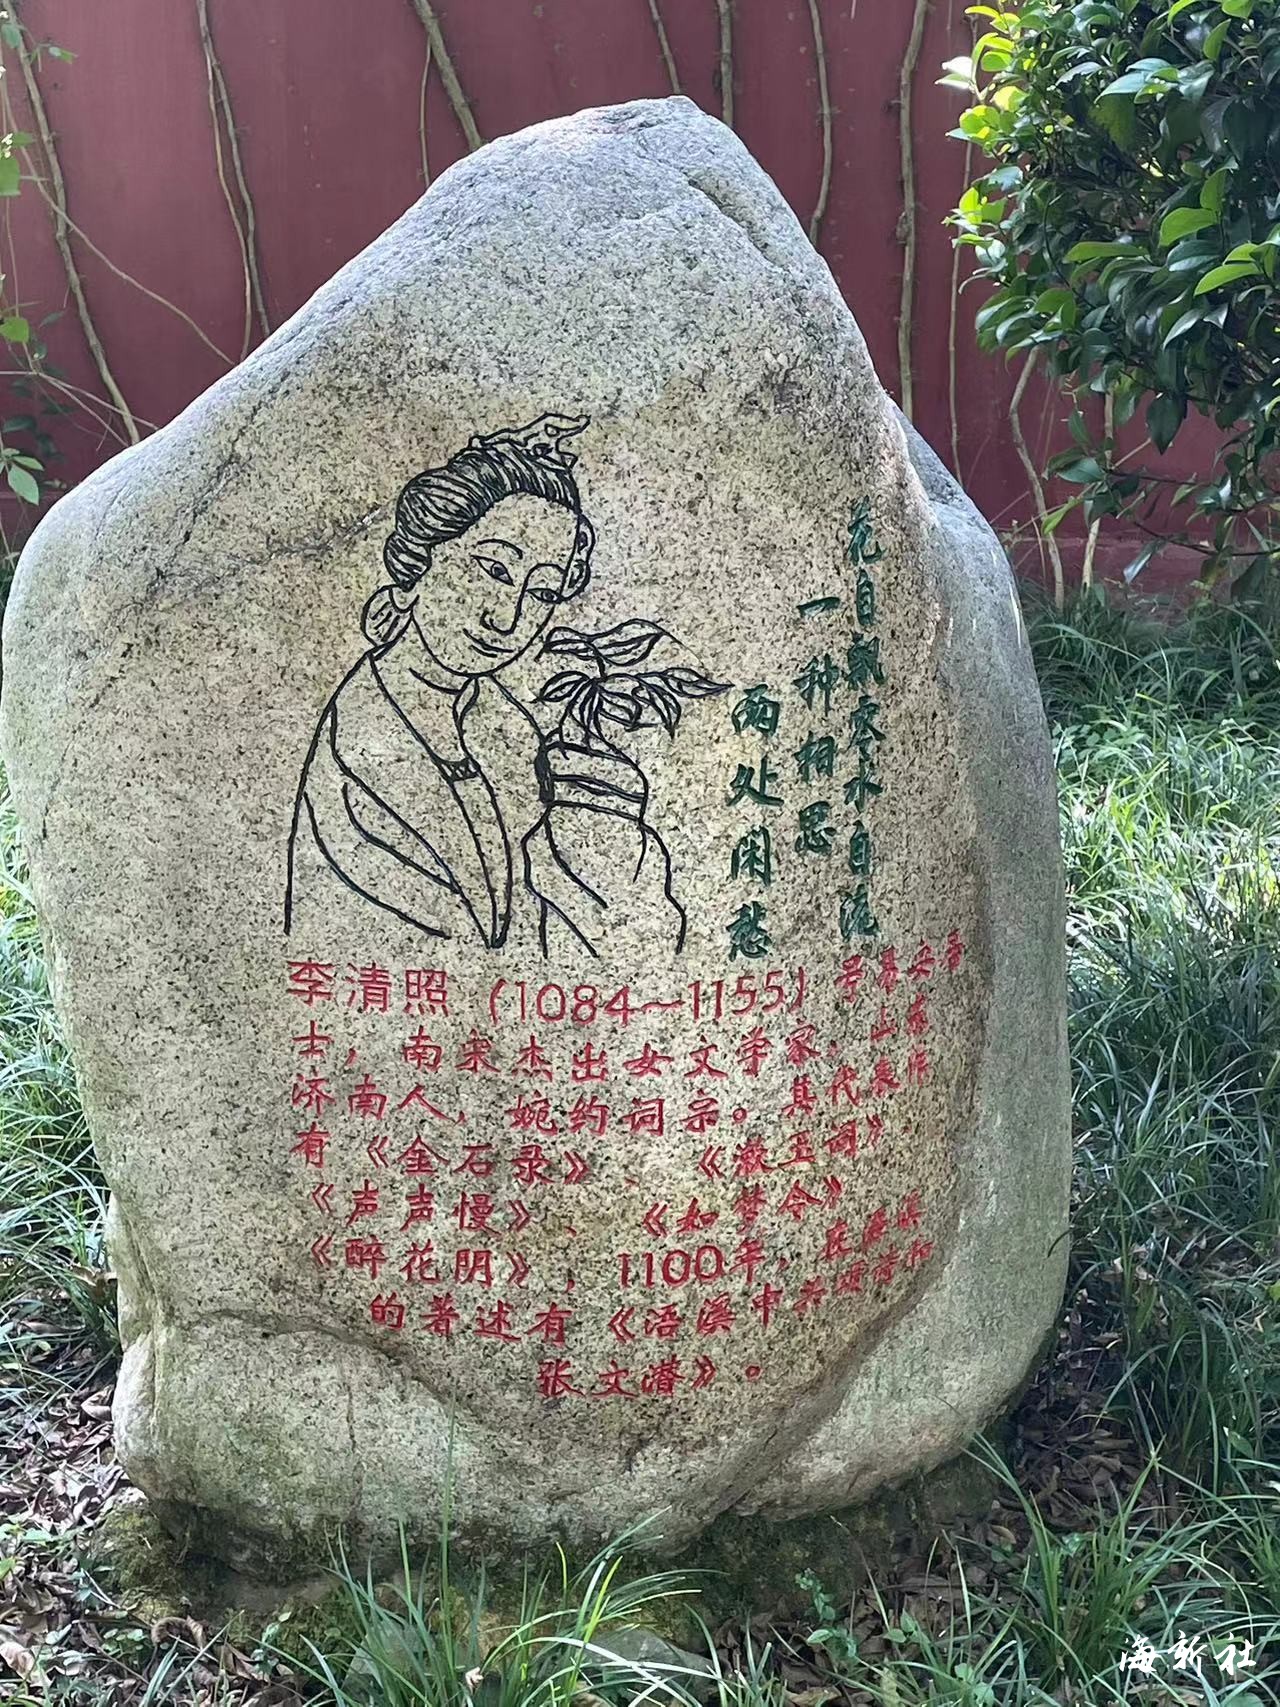 花自飘零水自流
一种相思
两处闲愁
李清照(1084～1155),号易安居
士,南宋杰出女文学家,山东
济南人,婉约词宗。其代表作
有《金石录》、《漱玉词》、
《声声慢》、《如梦令》
《醉花阴》,1100年,在浯溪
的著述有《浯溪中兴颂诗和
张文潜》。
海新社